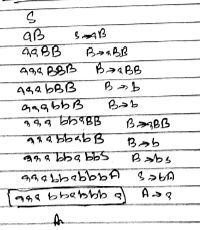 S
aB S→aB
aaBB B→aBB
aaaBBB B→aBB
aaabBB B→b
aaabbB B→b
aaabbaBB B→aBB
aaabbabB B→b
aaabbabbS B→bS
aaabbabbbA S→bA
aaabbabbba A→a